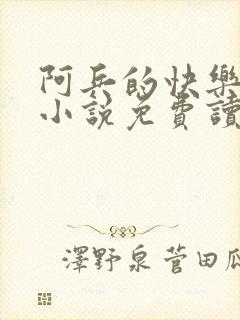 阿兵的快樂
小說免費讀
澤野泉菅田瓜